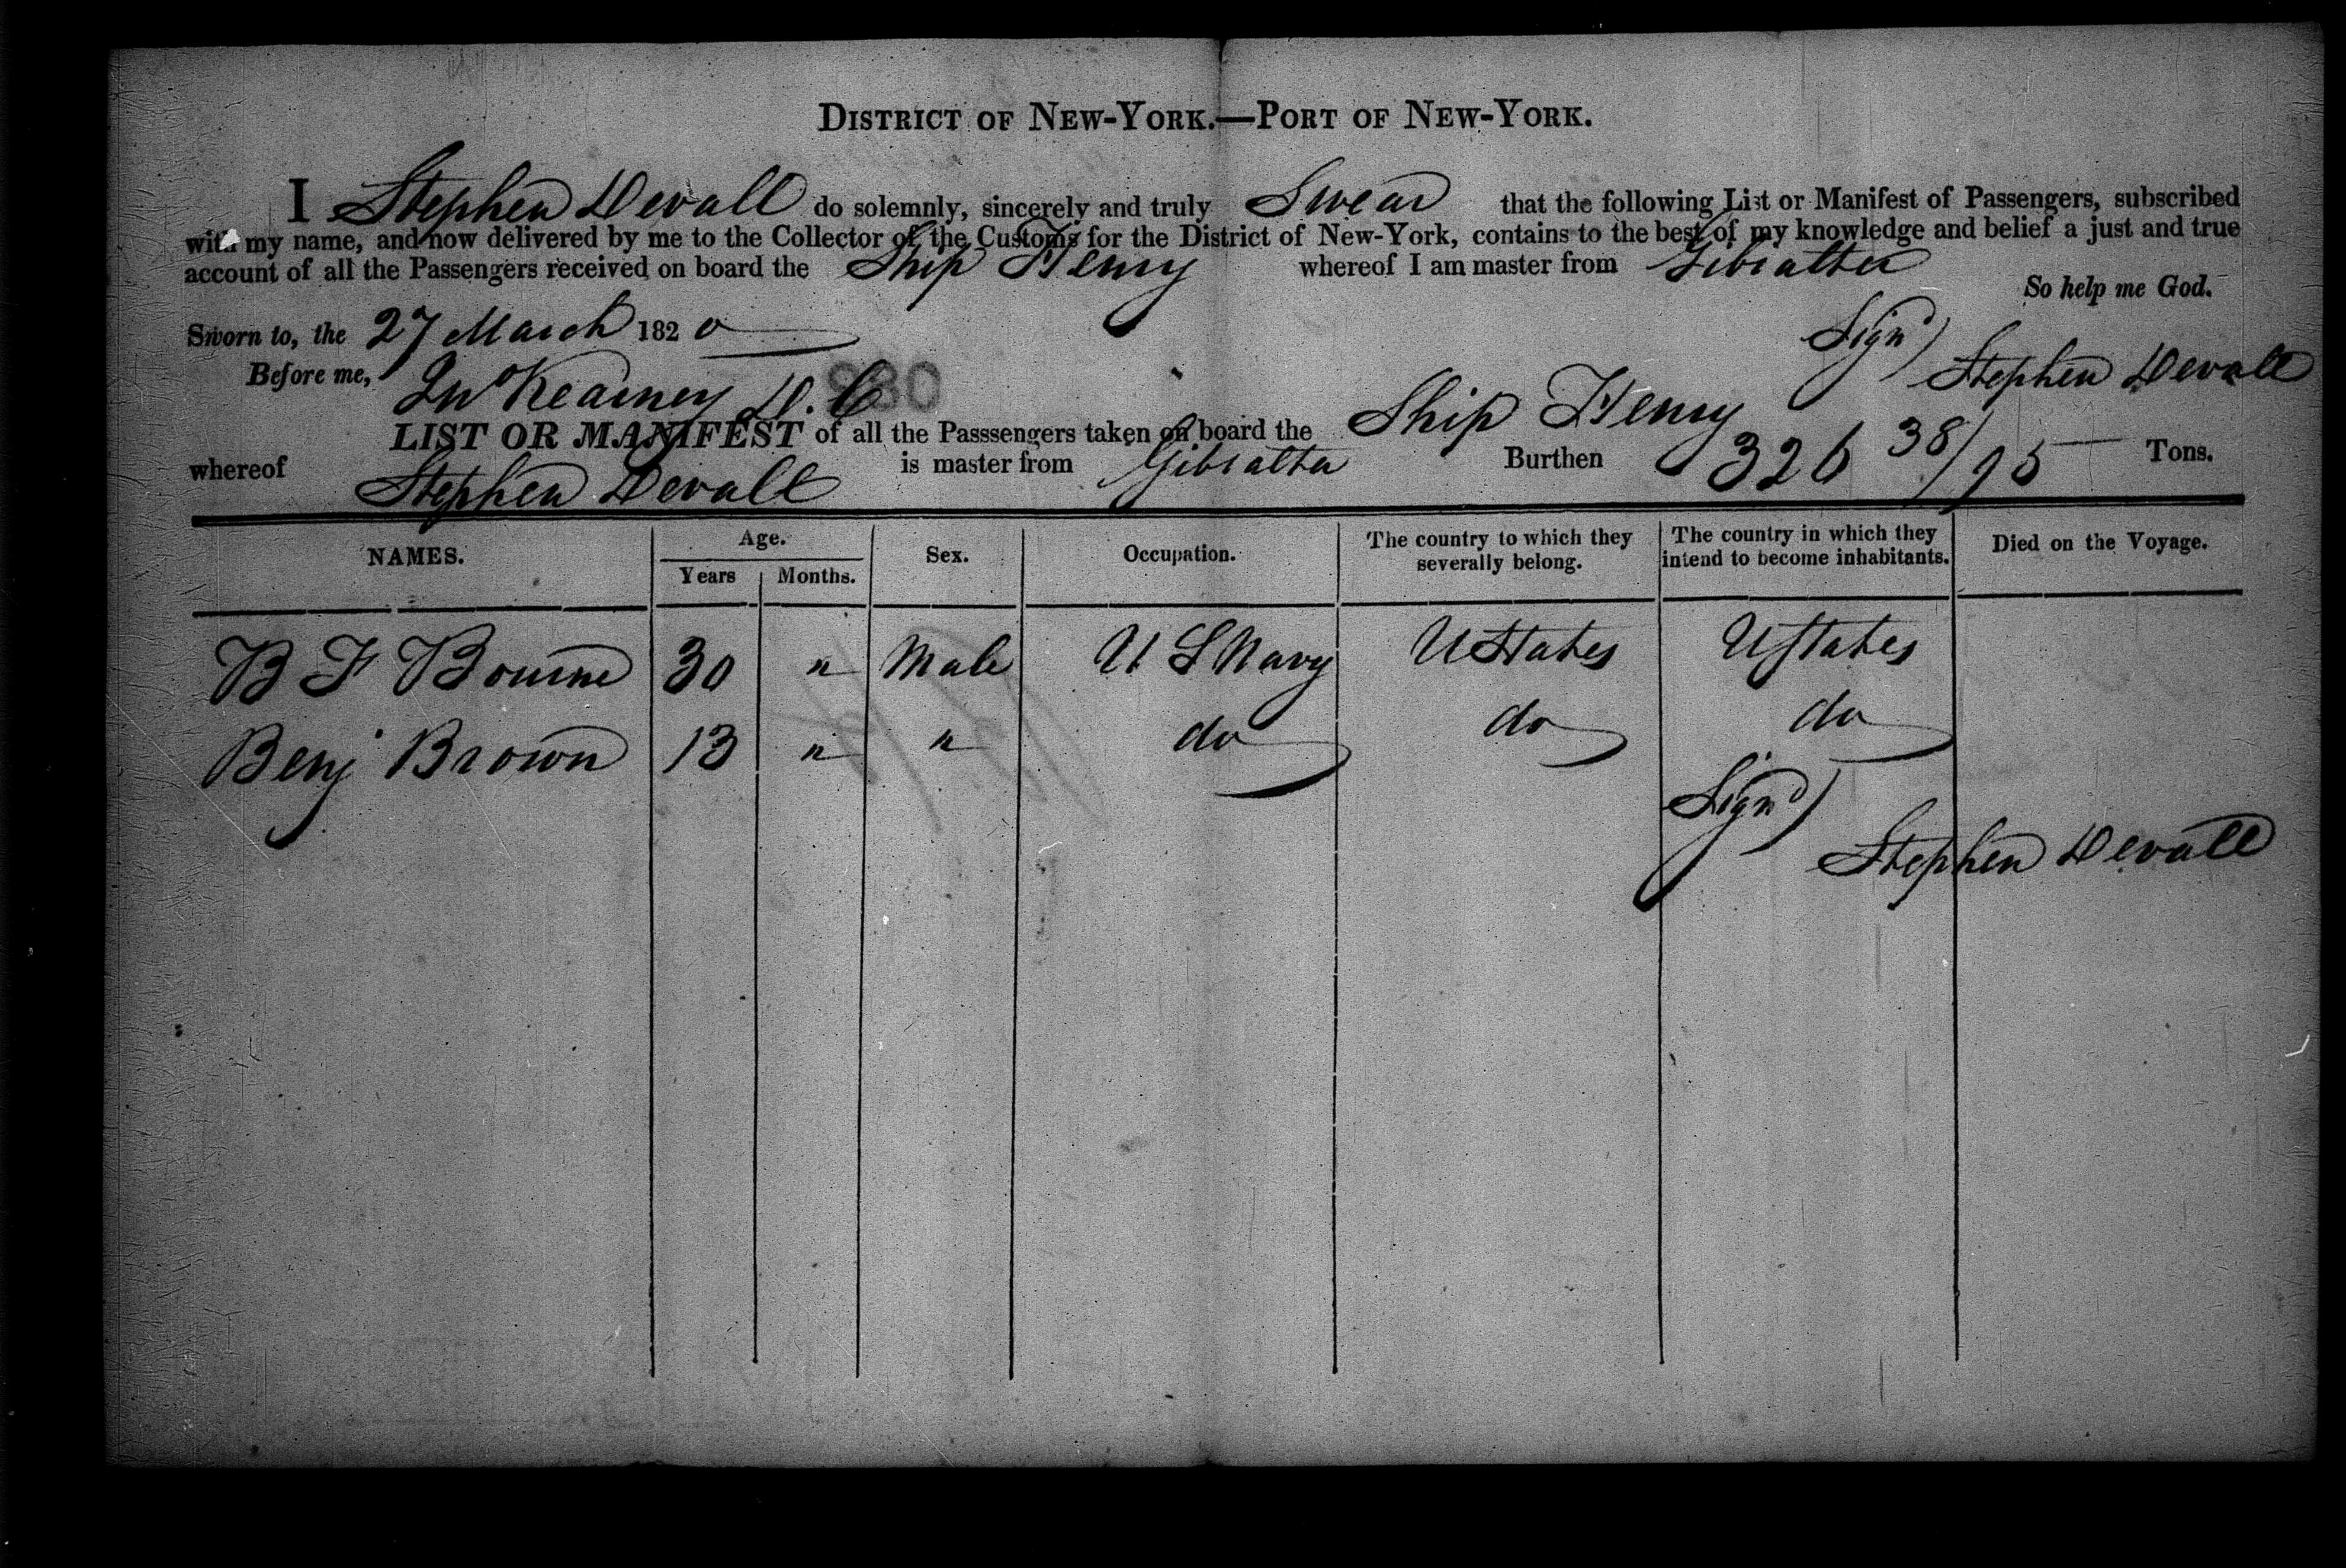 DISTRICT OF NEW-YORK.—PORT OF NEW-YORK.
I Stephen Devall do solemnly, sincerely and truly Swear that the following List or Manifest of Passengers, subscribed
with my name, and now delivered by me to the Collector of the Customs for the District of New-York, contains to the best of my knowledge and belief a just and true
account of all the Passengers received on board the Ship Henry whereof I am master from Gibralter
So help me God.
Sworn to, the 27 March 1820
Signd) Stephen Devall
Before me, Jno Kearney D. C
LIST OR MANIFEST of all the Passsengers taken on board the Ship Henry
whereof Stephen Devall is master from Gibralta Burthen 326 38/95 Tons.
NAMES. Age. Years Months. Sex. Occupation. The country to which they severally belong. The country in which they intend to become inhabitants. Died on the Voyage.
B F Bourne 30 " Male U S Navy UStates UStates
Benj Brown 13 " " do do do
Signd)
Stephen Devall